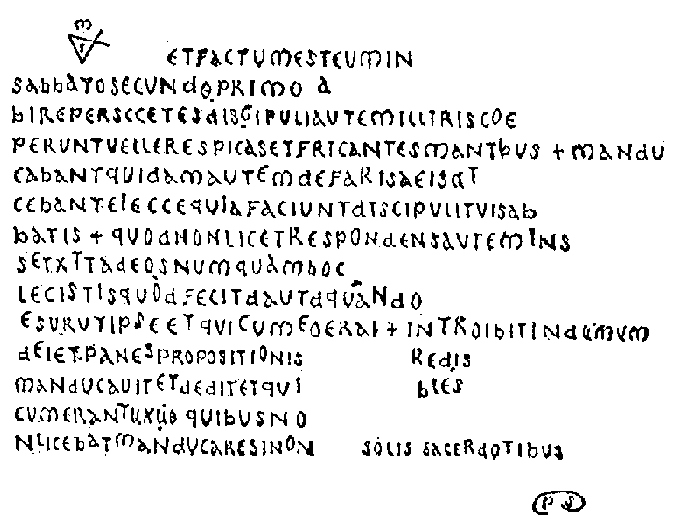 ETFACTUMESTEUMIN
SABBATOSECUNDOPRIMO A
BIREPERSCCETESDISGIPULIAUTEMILLITRISCOE
PERUNTUELLERESPICASETFRICANTESMANTBUS + MANDU
CABANTQUIDAMAUTEMDEFARISAEISAT
CEBANTEIECCEQUIAFACIUNTDTSCIPULITVISAB
BATIS + QUODNONLICETRESPONDENSAUTEMINS
SETXTTADEOSNUMQUAMBOC
LECISTISQUODFECITDAUTDQUANDO
ESURUTIPSEETQUICUMEOERAI + INTROIBITINDUMUM
DEIETPANESPROPOSITIONIS REDIS
MANDUCAUITETDEDITETQUI BLES
CUMERANTUXUO QUIBUSNO
NLICEBATMANDUCARESINON SOLIS SACERDOTIBUS
PS